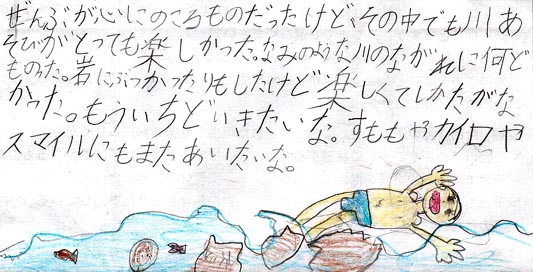 ぜんぶが心にのこるものだったけど、その中でも川あ
そびがとっても楽しかった。なみのような川のながれに何ど
ものった。岩にぶつかったりもしたけど楽しくてしかたがな
かった。もういちどいきたいな。すももやカイロや
スマイルにもまたあいたいな。